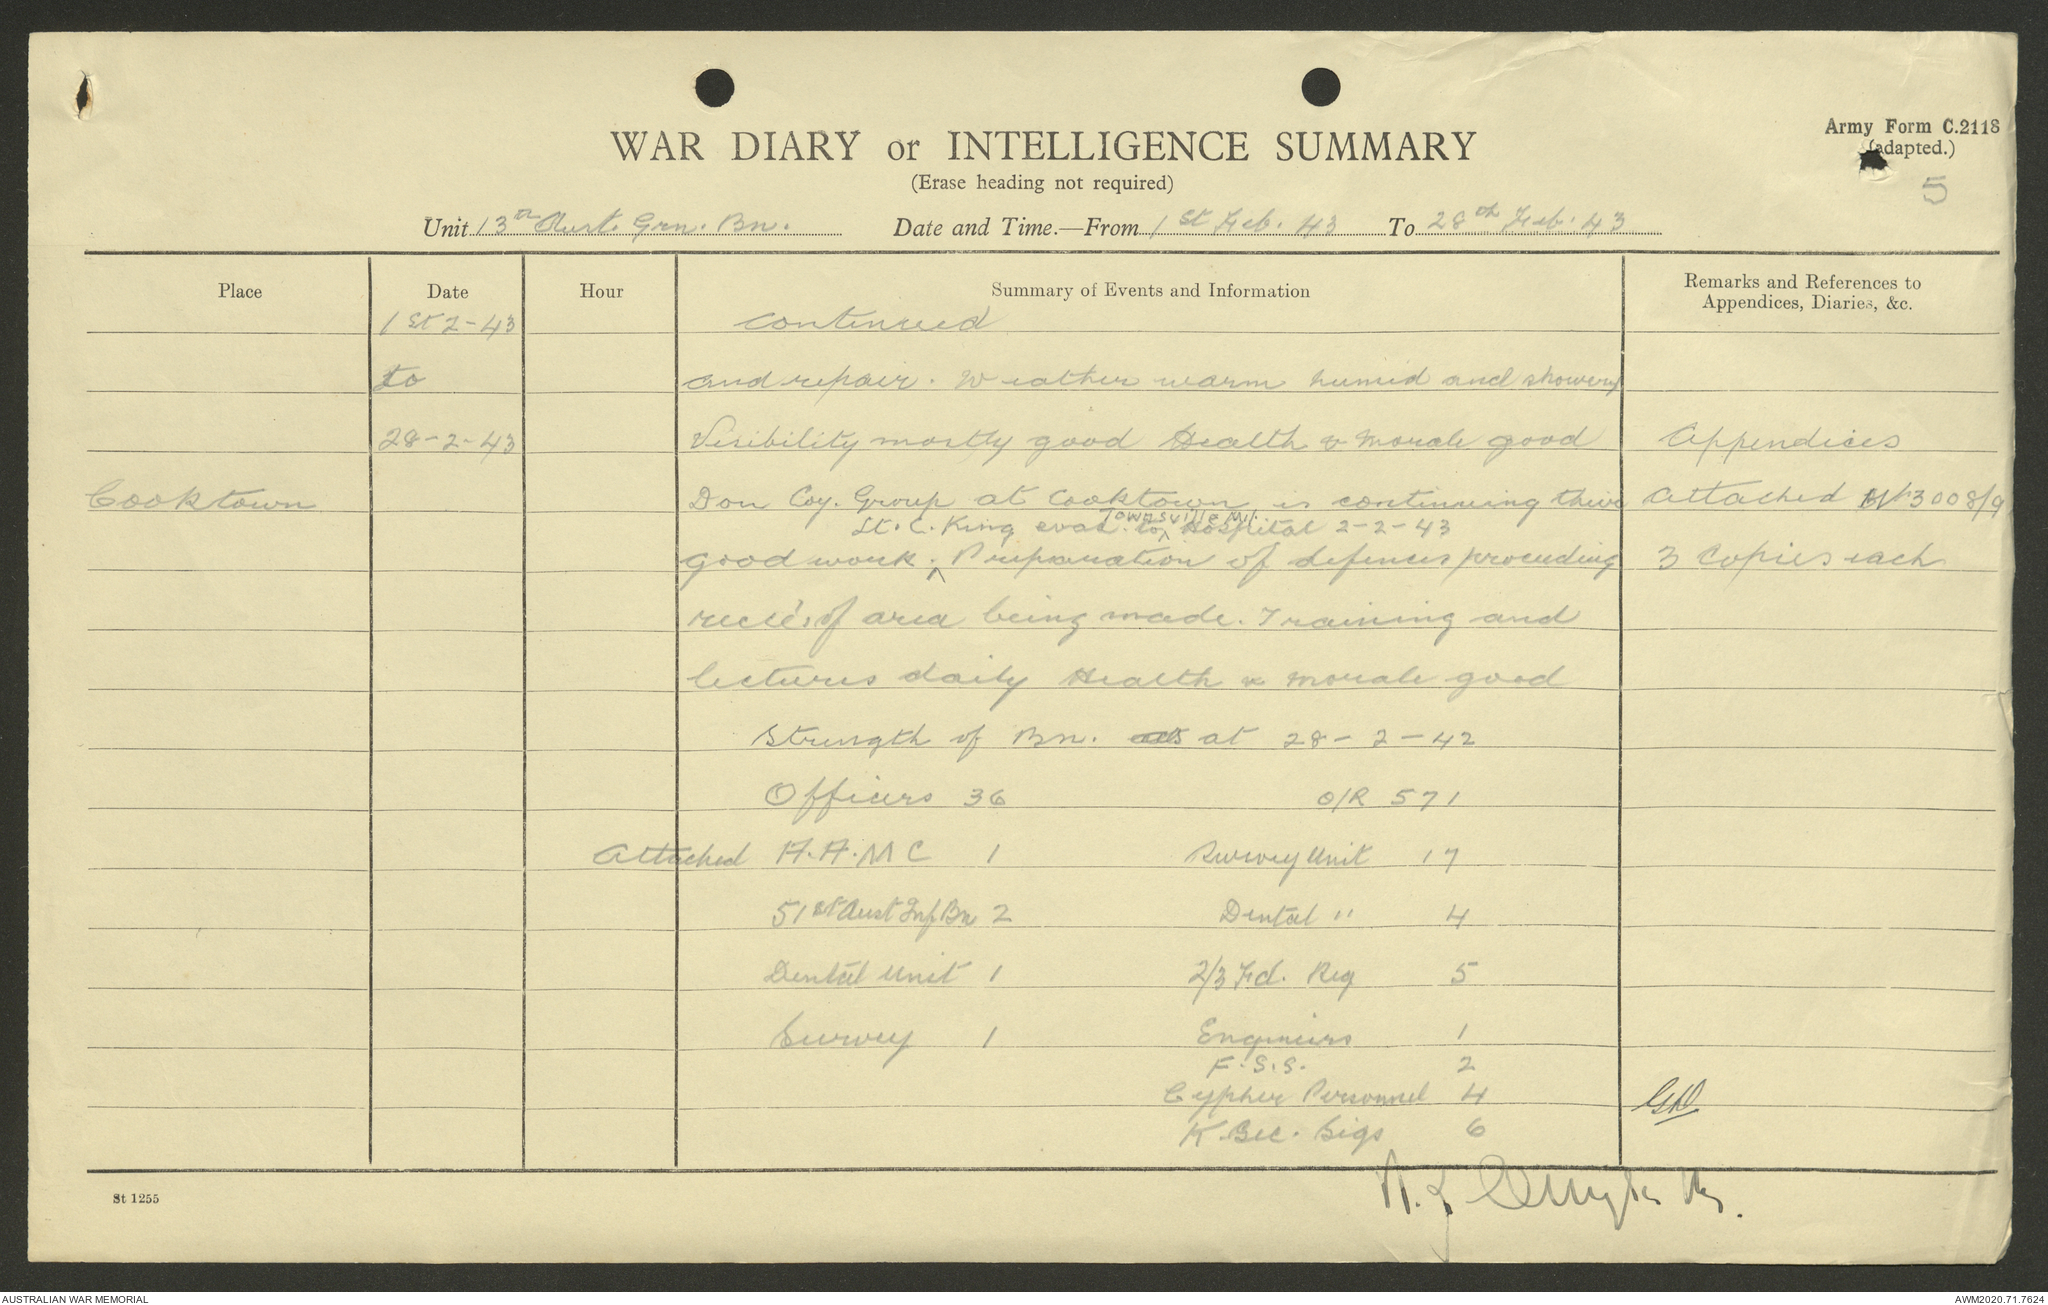 WAR DIARY or INTELLIGENCE SUMMARY
(Erase heading not required)
Army Form C.2118
(adapted.)
5
Unit 13th Aust. Grn. Bn. Date and Time.—From 1st Feb. 43 To 28th Feb. 43
Place Date Hour Summary of Events and Information Remarks and References to Appendices, Diaries, &c.
1st 2-43 continued
to and repair. Weather warm humid and showery
28-2-43 Visibility mostly good Health & Morale good Appendices
Cooktown Don Coy. Group at Cooktown is continuing their attached 3008/9
Townsville Mil.
Lt. C. King evac. to ^ Hospital 2-2-43
good work. ^ Preparation of defences proceeding 3 Copies each
recce's of area being made. Training and
lectures daily Health & morale good
Strength of Bn. as at 28-2-42
Officers 36 O/R 571
Attached A.A.M.C 1 Survey Unit 17
51st Aust Inf Bn 2 Dental " 4
Dental Unit 1 2/3 Fd. Reg 5
Survey 1 Engineers 1
F.S.S. 2
Cypher Personnel 4
K. Sec. Sigs 6
St 1255
AUSTRALIAN WAR MEMORIAL
AWM2020.71.7624